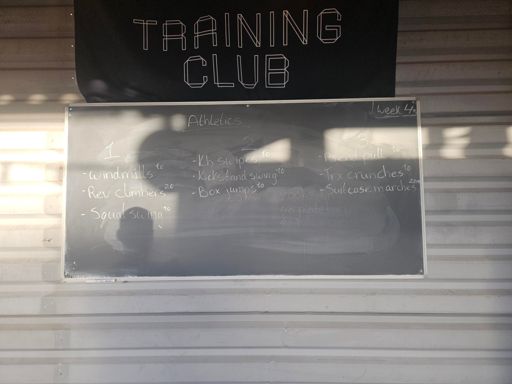 TRAINING
CLUB
week 4
Athletics
1
- windmills 10
- Rev climbers 20
- Squat swing 10
2
- Kb swipes 10
- Kickstand swing 10
- Box jumps 10
3
pull 10
- Trx crunches 10
- Suitcase marches